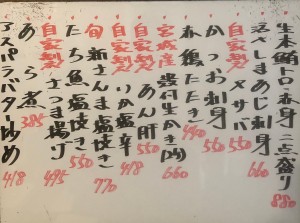 生本鮪トロ・赤身 二点盛り 880
活〆しまあじ刺身 660
自家製 〆サバ 550
かつお刺身 560
春鰹たたき 440
宮城産 殻付生かき(1ヶ) 660
自家製 あん肝 550
自家製 いか塩辛 418
旬 新さんま塩焼き 770
たち魚塩焼き 550
自家製 さつま揚げ 495
あら煮 385
アスパラバター炒め 418